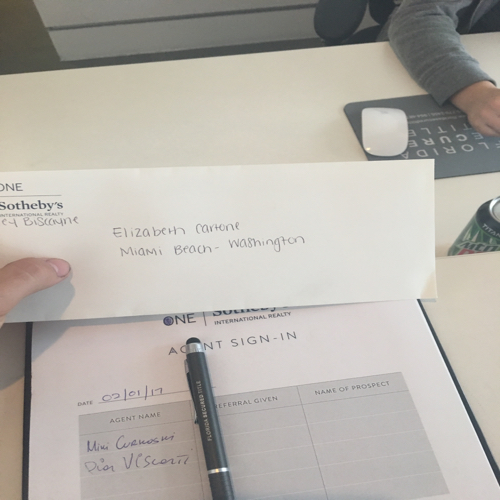 ONE
Sotheby's
INTERNATIONAL REALTY
ey Biscayne
Elizabeth Cartone
Miami Beach - Washington
FLORIDA
SECURE
TITLE
ONE | Sotheby's
INTERNATIONAL REALTY
AGENT SIGN-IN
DATE 02/01/17
AGENT NAME
REFERRAL GIVEN
NAME OF PROSPECT
Miki
FLORIDA SECURED TITLE